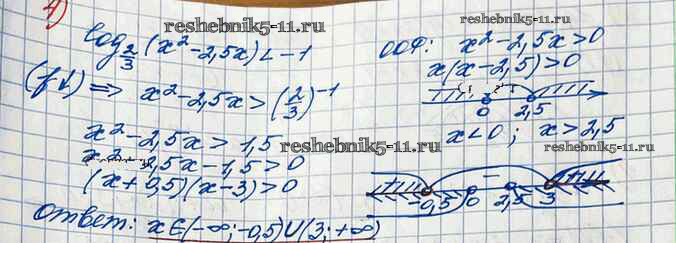 4)
log_{2/3}(x²-2,5x) < -1
(f↓) ⟹ x²-2,5x > (2/3)^{-1}
x²-2,5x > 1,5
x²-2,5x-1,5>0
(x+0,5)(x-3)>0
ООФ: x²-2,5x>0
x(x-2,5)>0
0 2,5
x<0; x>2,5
-
-0,5 0 2,5 3
Ответ: x∈(-∞;-0,5)∪(3;+∞)
reshebnik5-11.ru
reshebnik5-11.ru
reshebnik5-11.ru
reshebnik5-11.ru